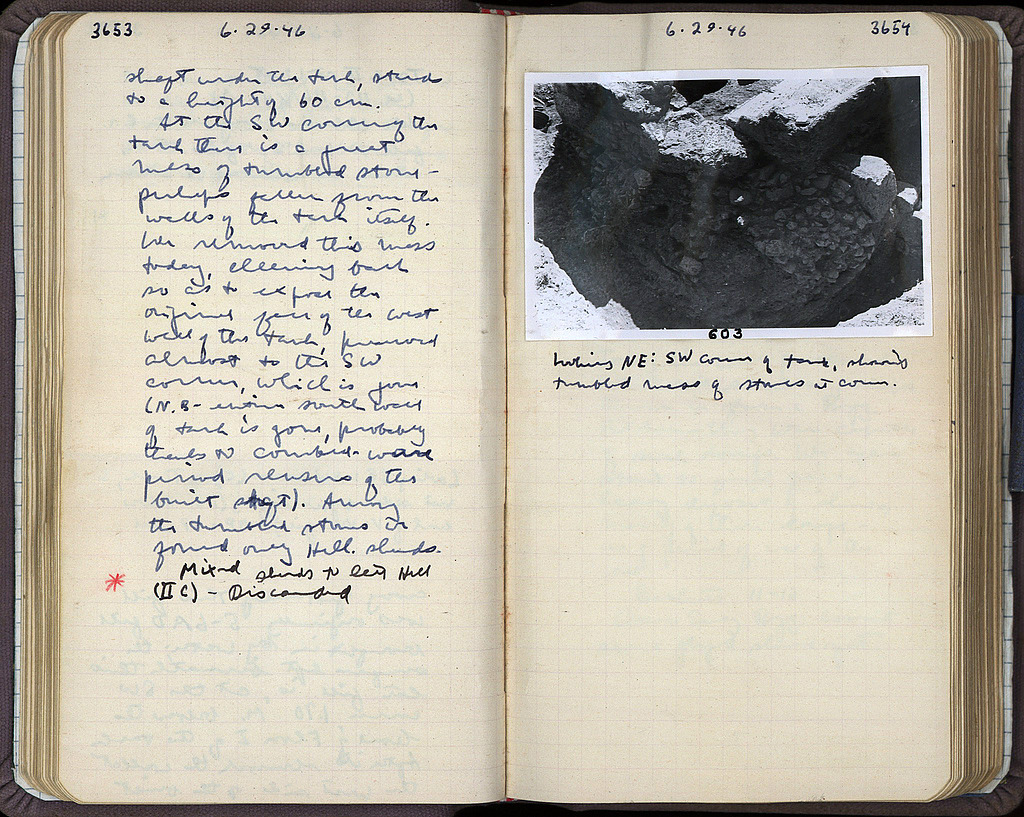 3653
6.29.46
shaft under the tank, stands
to a height of 60 cm.
At the SW corner of the
tank there is a great
mess of tumbled stone -
perhaps fallen from the
walls of the tank itself.
We removed this mess
today, cleaning back
so as to expose the
original face of the west
wall of the tank, preserved
almost to the SW
corner, which is gone
(N.B - entire south wall
of tank is gone, probably
thanks to combed-ware
period reusers of the
built shaft). Among
the tumbled stones is
found only Hell. sherds.
Mixed sherds to late Hell
(II C) - Discarded
6.29.46
3654
603
Looking NE: SW corner of tank, showing
tumbled mess of stones at corner.